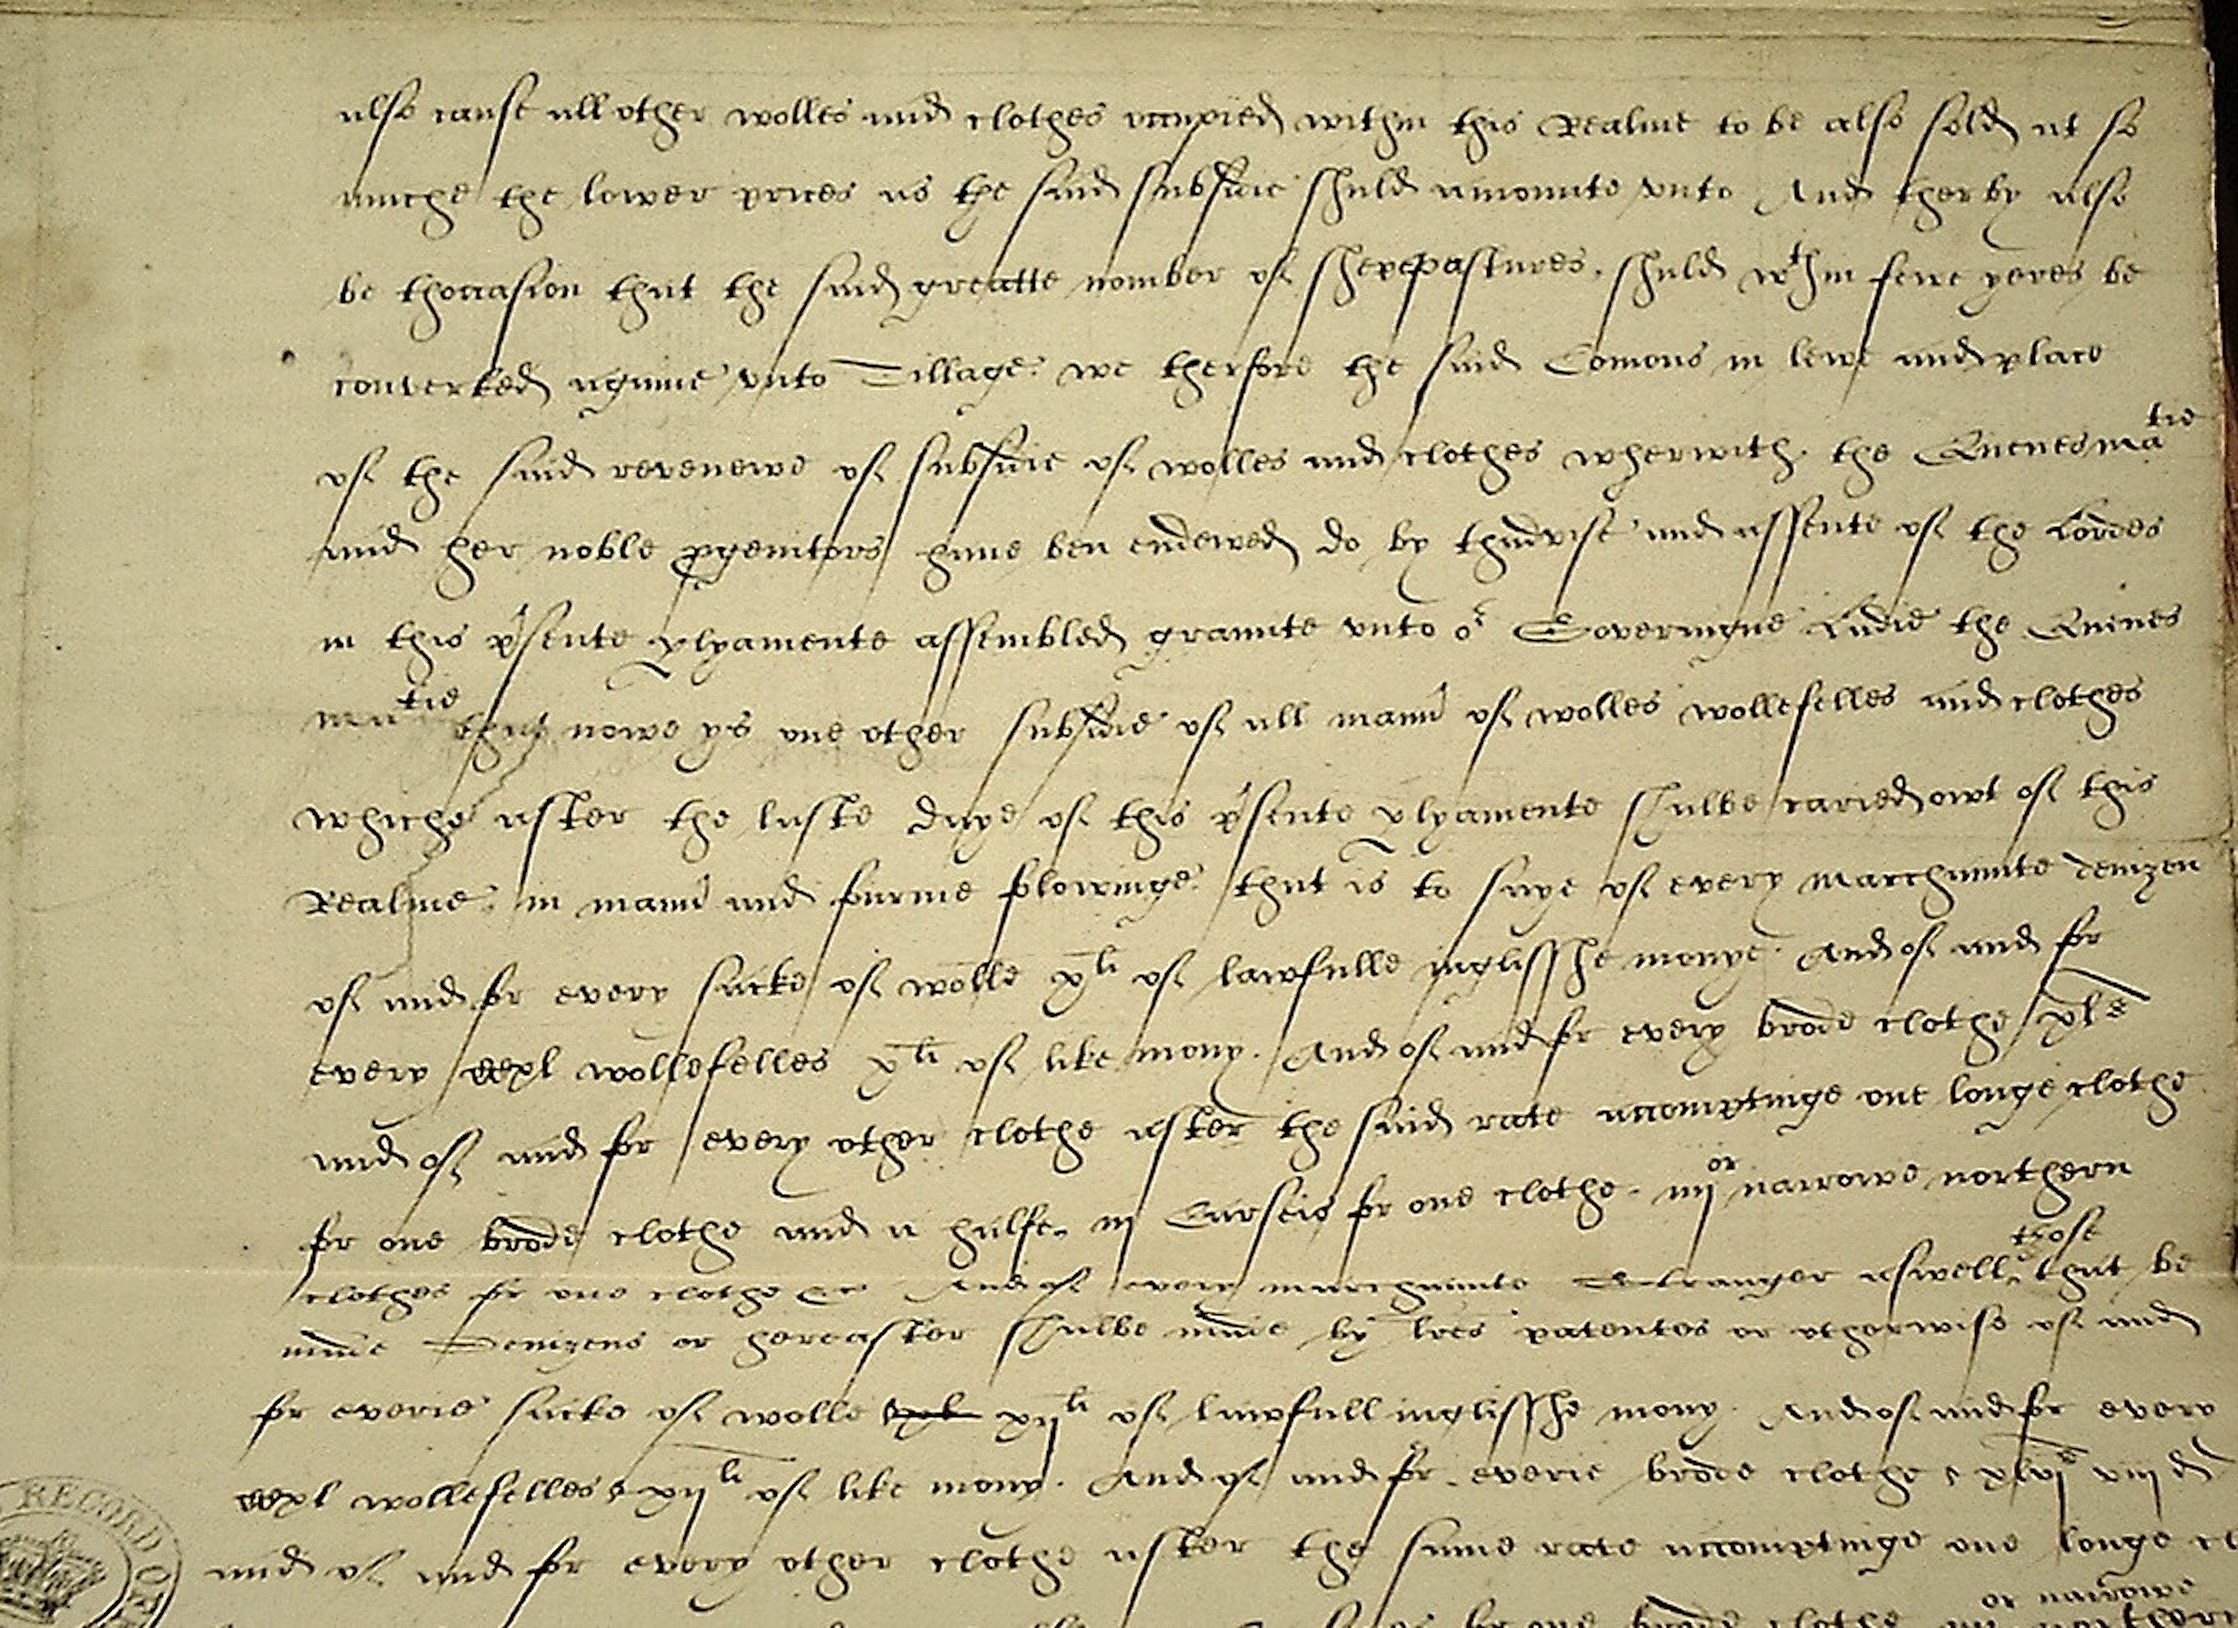 also cause all other wolles and clothes occupied within this Realme to be also sold at so
muche the lower prices as the said subsidie shuld amounte vnto And therby also
be thoccasion that the said greatte nomber of shepepastures. shuld wthin fewe yeres be
converted againe vnto Tillage. we therfore the said Comons in lewe and place
of the said revenewe of subsidie of wolles and clothes wherwith the Quenes matie
and her noble pgenitors haue ben endewed do by thadvise and assente of the Lordes
in this psente plyamente assembled graunte vnto or Soveraigne Ladie the Quenes
matie that nowe ys one other subsidie of all mann of wolles wollefelles and clothes
whiche after the laste daye of this psente plyamente shulbe caried owt of this
Realme. in mann and fourme folowinge. that is to saye of every marchaunte denizen
of and for every sacke of wolle xli of lawfulle inglisshe monye. And of and for
every ccxl wollefelles xli of like mony. And of and for every brode clothe xls
and of and for every other clothe after the said rate accomptinge one longe clothe
for one brode clothe and a halfe. iij Carseis for one clothe. iiij or narrowe northern
clothes for one clothe &c And of every marchaunte Estranger aswell those that be
made Denizens or hereafter shulbe made by lres patentes or otherwise of and
for everie sacke of wolle xijli of lawfull inglisshe mony. And of and for every
ccxl wollefelles xijli of like mony. And of and for everie brode clothe xlvjs viijd
and of and for every other clothe after the same rate accomptinge one longe cl
or narrowe
for one brode clothe iiij northern
RECORD OF